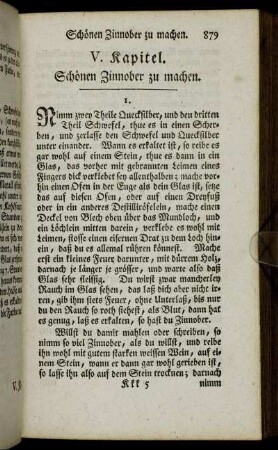 Schönen Zinnober zu machen. 879
V. Kapitel.
Schönen Zinnober zu machen.
1.
Nimm zwey Theile Quecksilber, und den dritten
Theil Schwefel, thue es in einen Scher-
ben, und zerlasse den Schwefel und Quecksilber
unter einander. Wann es erkaltet ist, so reibe es
gar wohl auf einem Stein, thue es dann in ein
Glas, das vorher mit gebranntem Leimen eines
Fingers dick verklebet sey allenthalben; mache vor-
hin einen Ofen in der Enge als dein Glas ist, setze
das auf diesen Ofen, oder auf einen Dreyfuß
oder in ein anderes Destillieröfelein, mache einen
Deckel von Blech oben über das Mundloch, und
ein Löchlein mitten darein, verklebe es wohl mit
Leimen, stosse einen eisernen Drat zu dem Loch hin-
ein, daß du es allemal rühren könnest. Mache
erst ein kleines Feuer darunter, mit dürrem Holz,
darnach je länger je grösser, und warte also daß
Glas sehr fleissig. Du wirst zwar mancherley
Rauch im Glas sehen, das laß dich aber nicht ir-
ren, gib ihm stets Feuer, ohne Unterlaß, bis nur
du den Rauch so roth siehest, als Blut, dann hat
es genug, laß es erkalten, so hast du Zinnober.
Willst du damit mahlen oder schreiben, so
nimm so viel Zinnober, als du willst, und reibe
ihn wohl mit gutem starken weissen Wein, auf ei-
nem Stein, wann er dann gar wohl gerieben ist,
so lasse ihn also auf dem Stein trocknen; darnach
Kkk 5 nimm